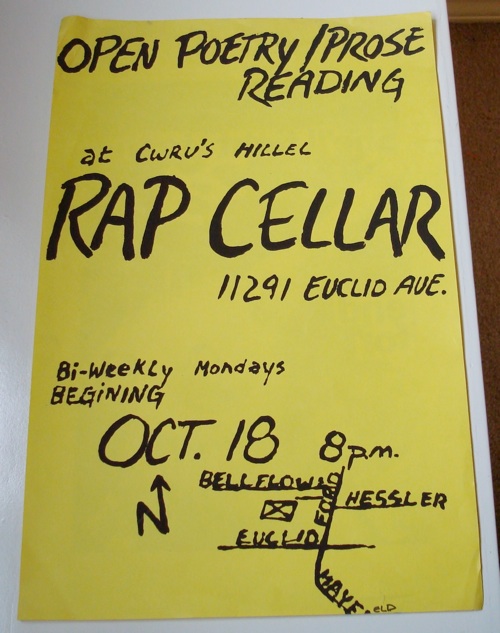 OPEN POETRY/PROSE
READING
at CWRU'S HILLEL
RAP CELLAR
11291 EUCLID AVE.
Bi-Weekly Mondays
BEGINING
OCT. 18 8 p.m.
BELLFLOWER
FORD
HESSLER
N
EUCLID
MAYF.